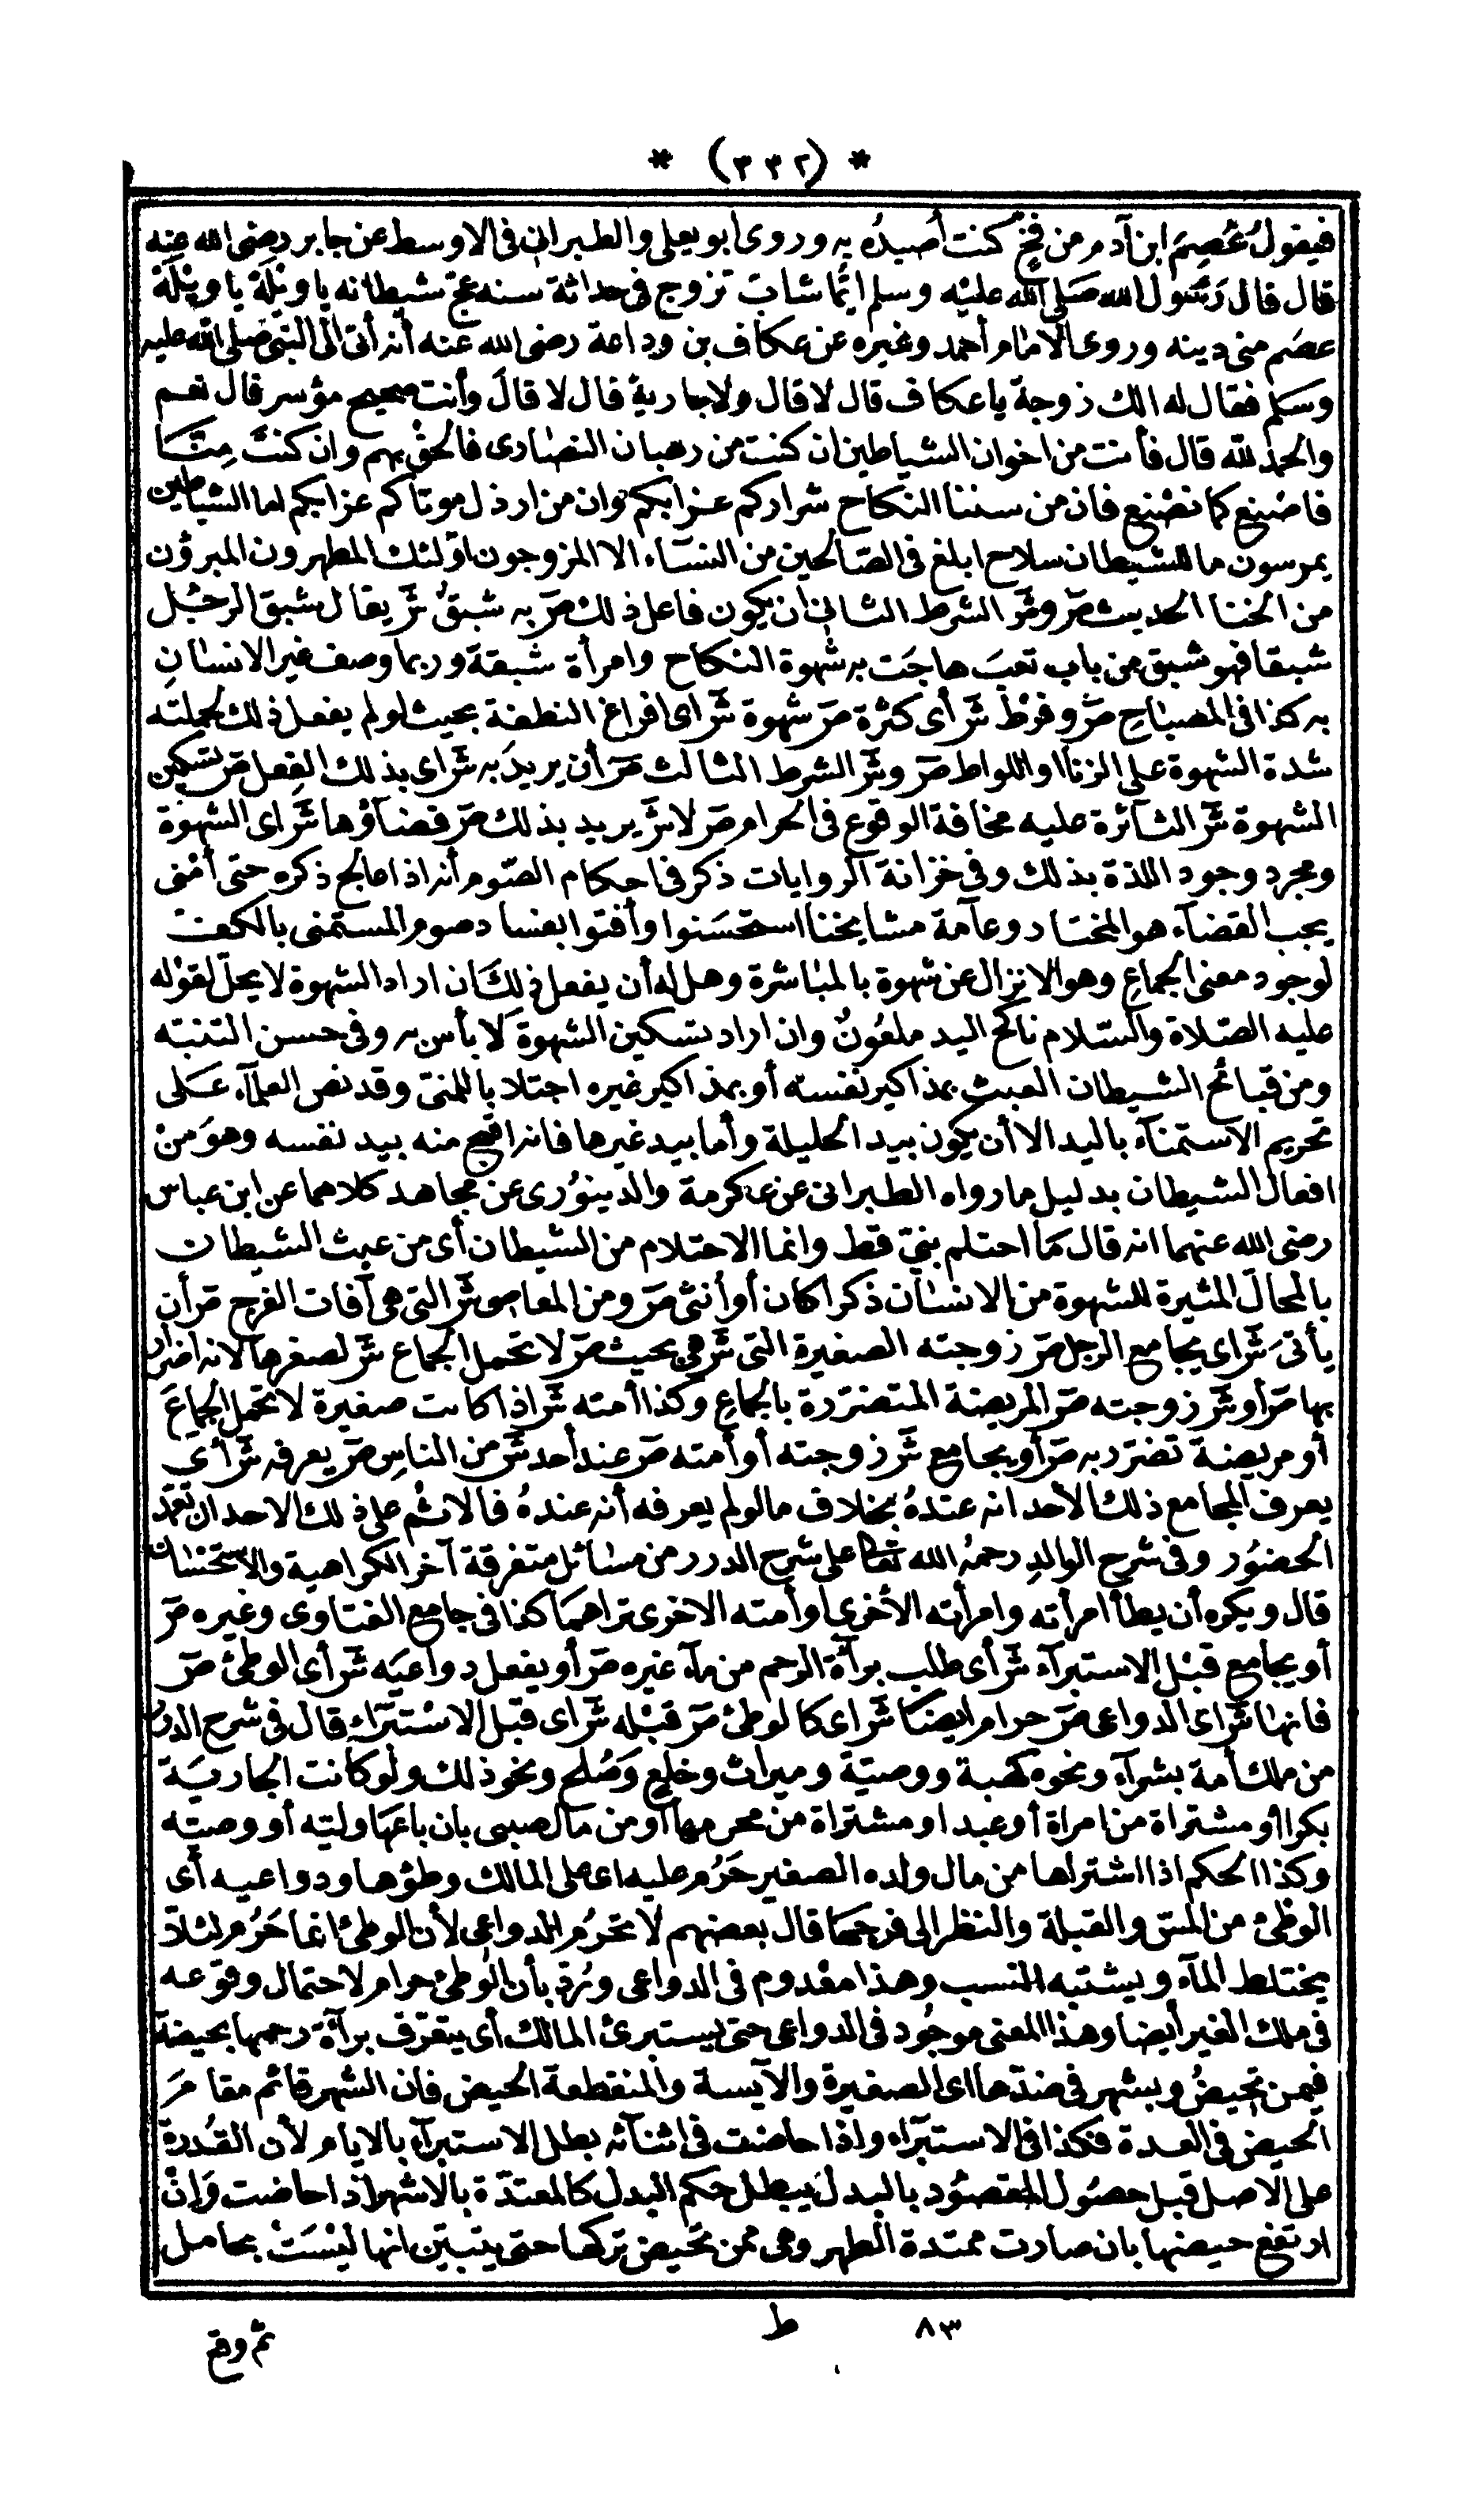 * (٣٣٢) *
فيقول عُصِمَ ابن آدم من فخٍّ كنت أصيدُه به وروى أبو يعلى والطبرانى فى الاوسط عن جابر رضى الله عنه
قال قال رسول الله صلى الله عليه وسلم أيّما شابّ تزوج فى حداثة سنه عج شيطانه ياويلَهُ ياويلَهُ
عصم منى دينه وروى الامام أحمد وغيره عن عكاف بن وداعة رضى الله عنه أنه أتى الى النبى صلى الله عليه
وسلم فقال له الك زوجة ياعكاف قال لا قال ولا جارية قال لا قال وأنت صحيح مؤسر قال نعم
والحمد لله قال فأنت من اخوان الشياطين ان كنت من رهبان النصارى فالحق بهم وان كنت مِنَّا
فاصنع كما نصنع فان من سنننا النكاح شراركم عزابكم وان من ارذل موتاكم عزابكم اما الشياطين
يمرسون ما للشيطان سلاح ابلغ فى الصالحين من النساء الا المزوجون اولئك المطهرون المبرؤن
من الخنا الحديث صّ و شّ الشرط الثانى أن يكون فاعل ذلك صّ به شبقٌ شّ يقال شبق الرجُل
شبقا فهو شبق من باب تعبَ هاجَت به شهوة النكاح وامرأة شبقة وربما وصف غير الانسان
به كذا فى المصباح صّ وفرْط شّ أى كثرة صّ شهوة شّ اى افراغ النطفة بحيث لو لم يفعل ذلك لحملته
شدة الشهوة على الزنا او اللواط صّ و شّ الشرط الثالث صّ أن يريدَ به شّ اى بذلك الفعل صّ تسكين
الشهوة شّ الثائرة عليه مخافة الوقوع فى الحرام صّ لا شّ يريد بذلك صّ قضاؤها شّ اى الشهوة
ومجرد وجود اللذة بذلك وفى خزانة الروايات ذكر فى احكام الصوم أنه اذا عالج ذكره حتى أمنى
يجب القضاء هو المختار وعامة مشايخنا استحسنوا وأفتوا بفساد صوم المستمنى بالكف
لوجود معنى الجماع وهو الانزال عن شهوة بالمباشرة وهل له أن يفعل ذلك ان اراد الشهوة لا يحل لقوله
عليه الصلاة والسلام ناكح اليد ملعُونٌ وان اراد تسكين الشهوة لا بأس به وفى حسن التنبّه
ومن قبائح الشيطان العبث بمذاكير نفسه أو بمذاكير غيره اجتلابا للمنىّ وقد نص العلماء عَلى
تحريم الاستمناء باليد الا أن يكون بيد الحليلة وأما بيد غيرها فانه اقبح منه بيد نفسه وهو من
افعال الشيطان بدليل ما رواه الطبرانى عن عكرمة والدينوُرى عن مجاهد كلاهما عن ابن عباس
رضى الله عنهما انه قال مَا احتلم نبىّ قط وانما الاحتلام من الشيطان أى من عبث الشيطان
بالمحالّ المثيرة للشهوة من الانسان ذكرا كان أو أنثى صّ ومن المعاصى شّ التى هى آفات الفرج صّ أن
يأتىَ شّ اى يجامع الرجل صّ زوجته الصغيرة التى شّ هى بحيث صّ لا تحمل الجماع شّ لصغرها لانه اضرار
بها صّ أو شّ زوجته صّ المريضة المتضررة بالجماع وكذا أمته شّ اذا كانت صغيرة لا تحمل الجماع
أو مريضة تضرر به صّ أو يجامع شّ زوجته أو أمته صّ عند أحد شّ من الناس صّ يعرفه شّ أى
يعرف المجامع ذلك الأحد انه عندهُ بخلاف ما لو لم يعرفه أنه عندهُ فالاثم على ذلك الاحد ان تعمّد
الحضوُر وفى شرح الوالد رحمهُ الله تعالى على شرح الدرر من مسائل متفرقة آخر الكراهية والاستحسان
قال ويكره أن يطأ امرأته وامرأته الأخرى او أمته الاخرى تراهما كذا فى جامع الفتاوى وغيره صّ
أو يجامع قبْل الاستبراء شّ أى طلب براءة الرحم من ماء غيره صّ أو يفعل دواعيَه شّ أى الوطئ صّ
فانها شّ اى الدواعى صّ حرام ايضا شّ اى كالوطئ صّ قبْله شّ اى قبل الاستبراء قال فى شرح الدرر
من ملك أمة بشراء ونحوه كهبة ووصيّة وميراث وخلعٍ وَصُلحٍ ونحو ذلك ولو كانت الجاريَة
بكرا او مشتراة من امراة أو عبد او مشتراة من محرمها أو من مال صبى بان باعَهَا وليّه أو وصيّه
وكذا الحكم اذا اشتراها من مال ولده الصغير حَرُم عليه اى على المالك وطؤها ودواعيه أى
الوطئ من المسّ والقبلة والنظر الى فرجهَا قال بعضهم لا تحرُم الدواعى لأن الوطئ انما حَرُم لئلا
يختلط الماء ويشتبه النسب وهذا معْدوم فى الدواعى ورُدّ بأن الوطئ حرام لاحتمال وقوعه
فى ملك الغير أيضا وهذا المعنى موجُود فى الدواعى حتى يستبرئ المالك أى يتعرّف براءة رحمها بحيضة
فيمن تحيضُ وبشهر فى ضدّها اى الصغيرة والآيسة والمنقطعة الحيض فان الشهر قائم مقامَ
الحيض فى العدة فكذا فى الاستبراء واذا حاضت فى اثنائه بطل الاستبراء بالايام لأن القُدرة
على الاصل قبل حصُول المقصوُد بالبدل يبطل حكم البدل كالمعتدّة بالاشهر اذا حاضت وَإنْ
ارتفع حيضها بان صارت ممتدة الطهر وهى ممن تحيض تركها حتى يتبيّن انها ليْسَتْ بحامل
٨٣ ط ثم وقع